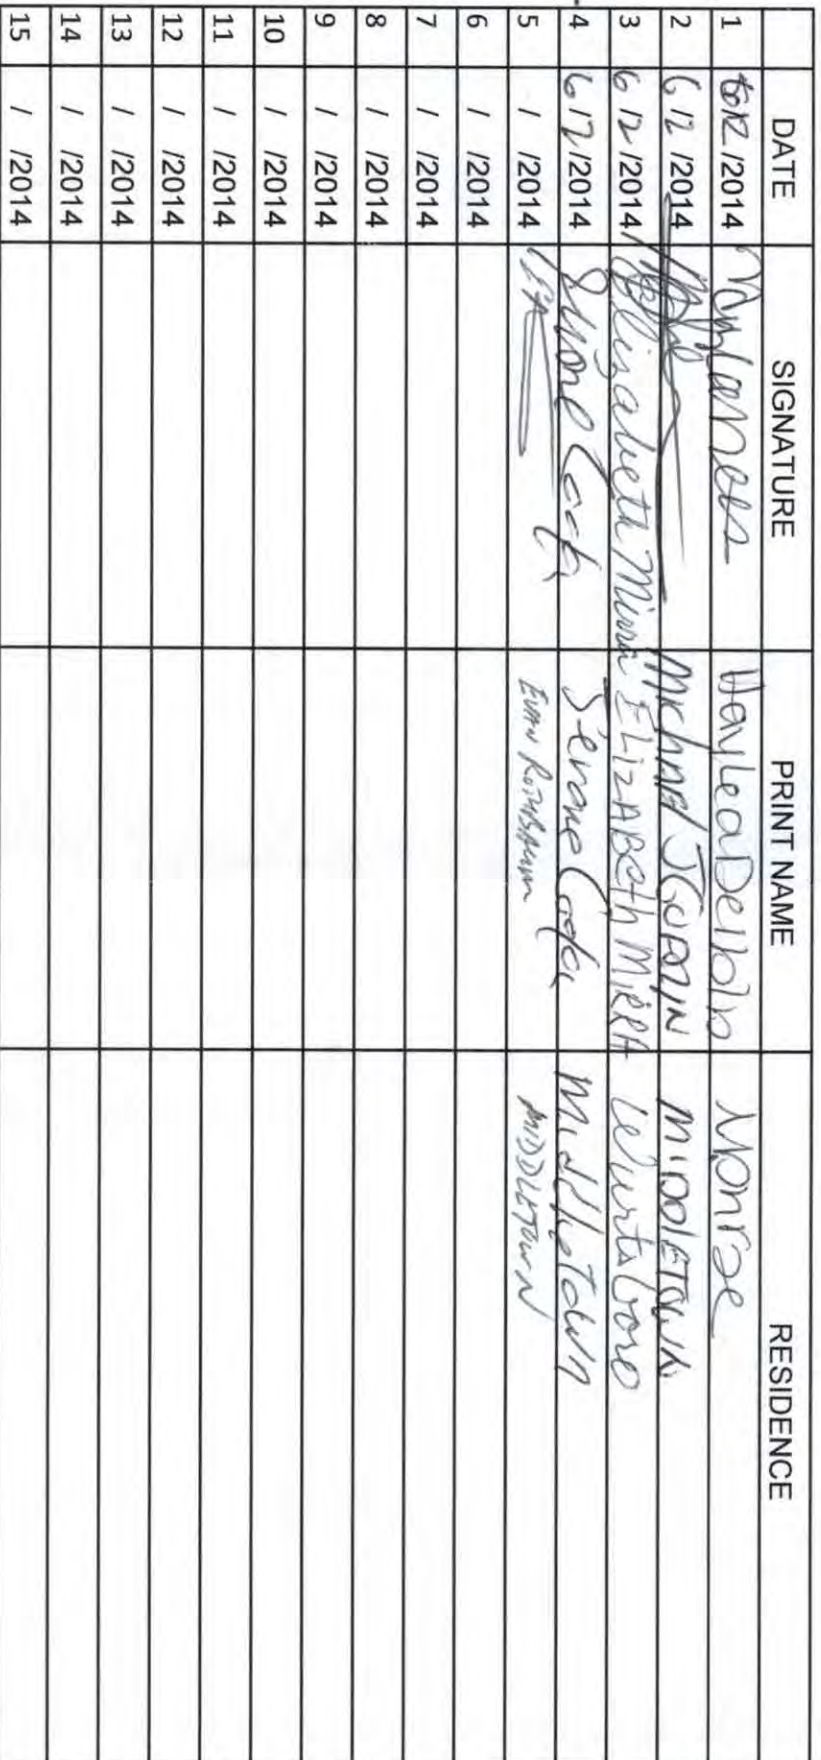 DATE SIGNATURE PRINT NAME RESIDENCE
1 /2014 Monroe
2 6 12 /2014 Michael J MIDDLETOWN
3 6 12 /2014 Elizabeth Mirra ELIZABETH MIRRA Wurtsboro
4 6 12 /2014 Middletown
5 / /2014 EVAN MIDDLETOWN
6 / /2014
7 / /2014
8 / /2014
9 / /2014
10 / /2014
11 / /2014
12 / /2014
13 / /2014
14 / /2014
15 / /2014